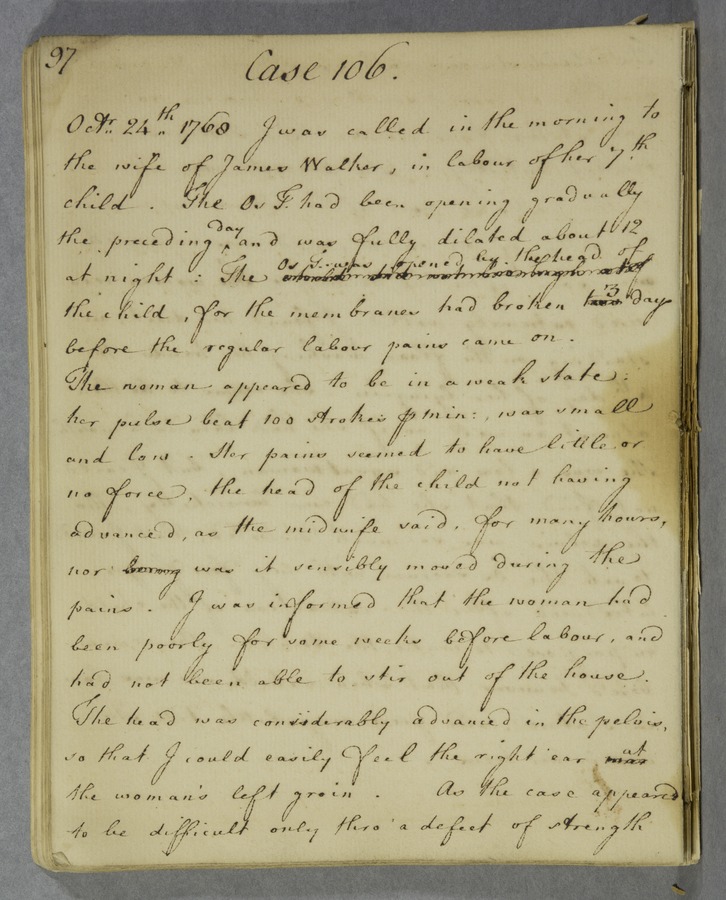 97
Case 106.
Octr. 24th. 1768 I was called in the morning to
the wife of James Walker, in labour of her 7th.
child. The Os T. had been opening gradually
the preceding day, and was fully dilated about 12
at night: The Os T. was opened by the head of
the child, for the membranes had broken 3 day
before the regular labour pains came on.
The woman appeared to be in a weak state:
her pulse beat 100 strokes ⅌ min:, was small
and low. Her pains seemed to have little or
no force, the head of the child not having
advanced, as the midwife said, for many hours,
nor was it sensibly moved during the
pains. I was informed that the woman had
been poorly for some weeks before labour, and
had not been able to stir out of the house.
The head was considerably advanced in the pelvis,
so that I could easily feel the right ear at
the woman's left groin. As the case appeared
to be difficult only thro' a defect of strength